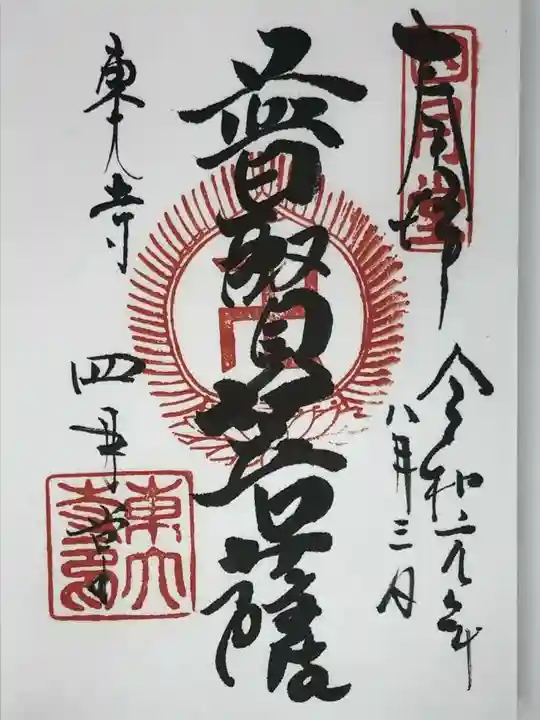 奉拝
四月堂
令和元年
八月三日
普賢菩薩
東大寺
四月堂
東大
寺印